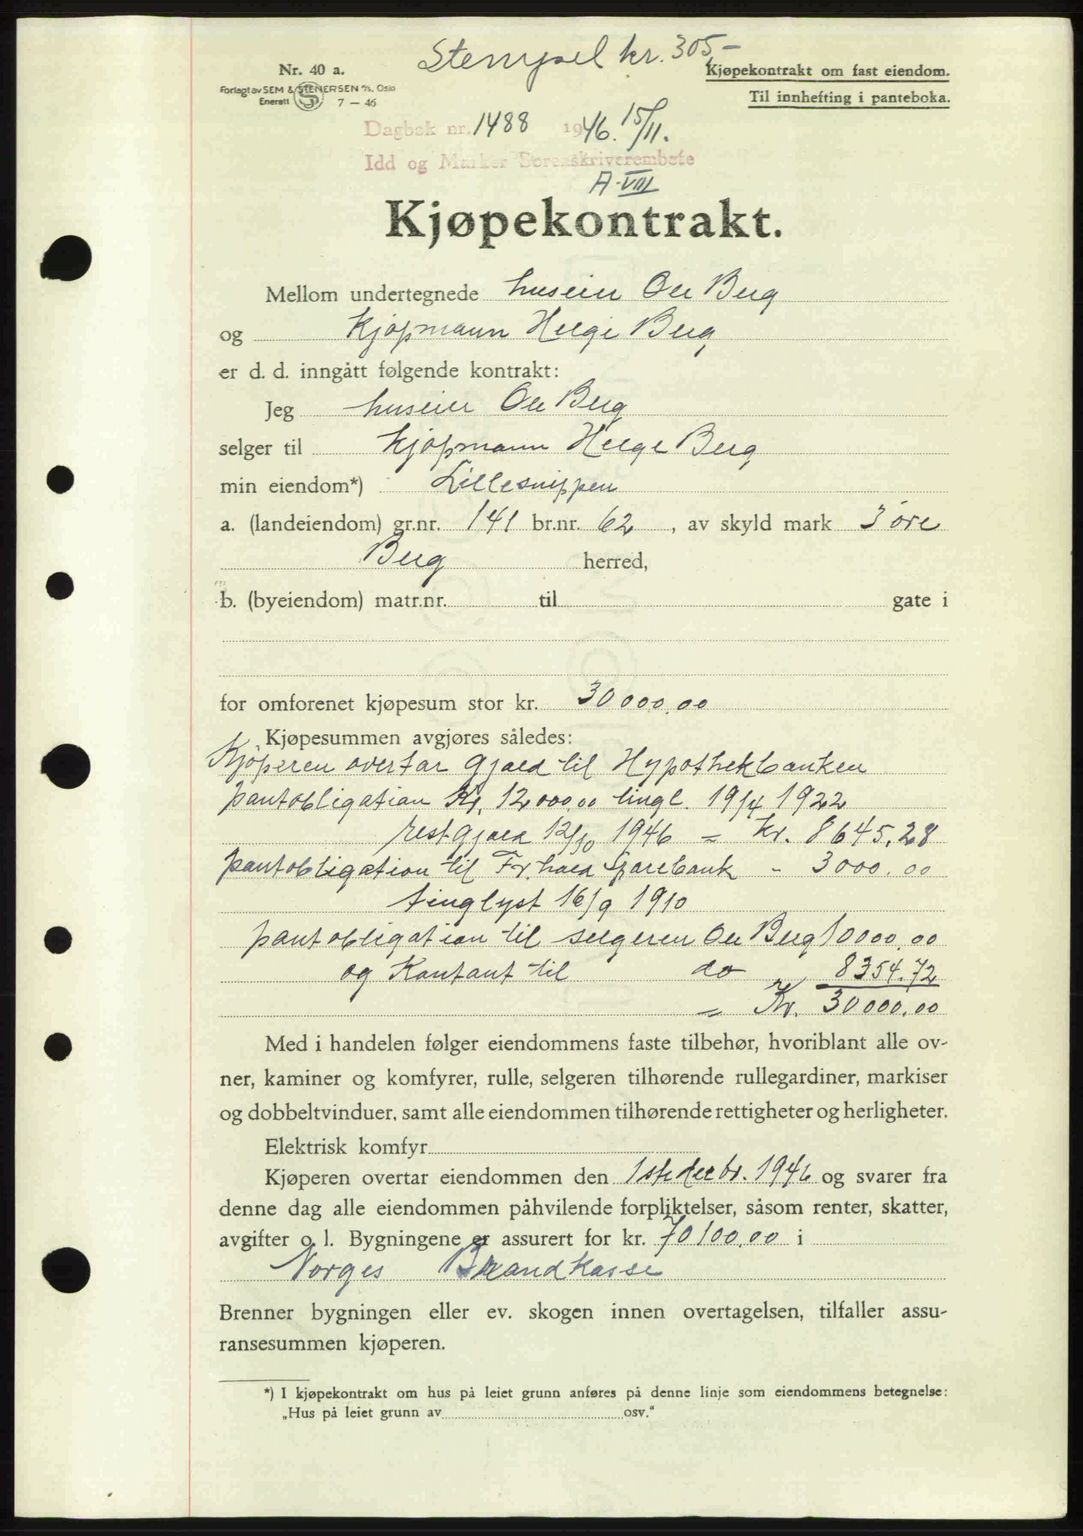 Stempel kr. 305,-
Nr. 40 a.
Kjøpekontrakt om fast eiendom.
Forlagt av SEM & STENERSEN A/S, Oslo
Enerett S 7 – 46
Til innhefting i panteboka.
Dagbok nr. 1488 1946. 15/11.
Idd og Marker Sorenskriverembete
A-VIII
Kjøpekontrakt.
Mellom undertegnede huseier Ole Berg
og Kjøpmann Helge Berg
er d. d. inngått følgende kontrakt:
Jeg huseier Ole Berg
selger til Kjøpmann Helge Berg
min eiendom*) Lillesnippen
a. (landeiendom) gr.nr. 141 br.nr. 62 , av skyld mark 3 øre
Berg herred,
b. (byeiendom) matr.nr. til gate i
for omforenet kjøpesum stor kr. 30000.00
Kjøpesummen avgjøres således:
Kjøperen overtar gjæld til Hypothekbanken
pantobligation Kr. 12000.00 tingl. 19/4 1922
restgjæld 12/10 1946 = Kr. 8645,28
pantobligation til Fr.hald Sparebank - 3000.00
tinglyst 16/9 1910
pantobligation til selgeren Ole Berg 10000.00
og Kontant til do 8354.72
= Kr. 30000.00
Med i handelen følger eiendommens faste tilbehør, hvoriblant alle ov-
ner, kaminer og komfyrer, rulle, selgeren tilhørende rullegardiner, markiser
og dobbeltvinduer, samt alle eiendommen tilhørende rettigheter og herligheter.
Elektrisk komfyr
Kjøperen overtar eiendommen den 1ste decbr. 1946 og svarer fra
denne dag alle eiendommen påhvilende forpliktelser, såsom renter, skatter,
avgifter o. l. Bygningene er assurert for kr. 70100.00 i
Norges Brandkasse
Brenner bygningen eller ev. skogen innen overtagelsen, tilfaller assu-
ransesummen kjøperen.
*) I kjøpekontrakt om hus på leiet grunn anføres på denne linje som eiendommens betegnelse:
„Hus på leiet grunn av osv."